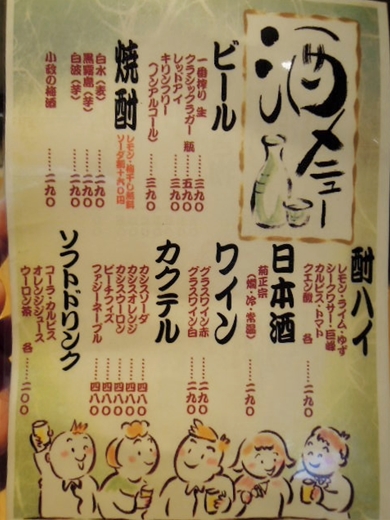 酒メニュー
ビール
一番搾り 生 三九〇
クラシックラガー 瓶 五九〇
レッドアイ 三九〇
キリンフリー
(ノンアルコール) 三九〇
焼酎
レモン・梅干し無料
ソーダ割+六〇円
白水(麦) 二九〇
黒霧島(芋) 二九〇
白波(芋) 二九〇
小数の梅酒 二九〇
酎ハイ
レモン・ライム・ゆず
シークワサー・巨峰
カルピス・トマト
クエン酸 各 二九〇
日本酒
菊正宗
(燗・冷・常温) 二九〇
ワイン
グラスワイン赤 二九〇
グラスワイン白 二九〇
カクテル
カシスソーダ 四八〇
カシスオレンジ 四八〇
カシスウーロン 四八〇
ピーチフィズ 四八〇
ファジーネーブル 四八〇
ソフトドリンク
コーラ・カルピス
オレンジジュース
ウーロン茶 各 二〇〇